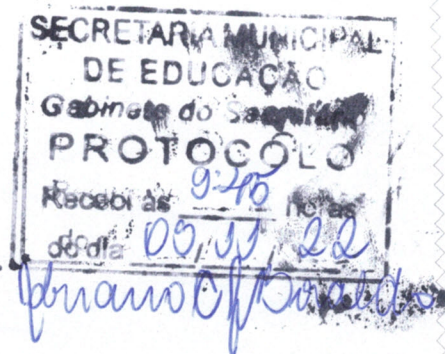 SECRETARIA MUNICIPAL
DE EDUCAÇÃO
Gabinete do Secretário
PROTOCOLO
Recebi às 9:45 horas
do dia 09, 11, 22